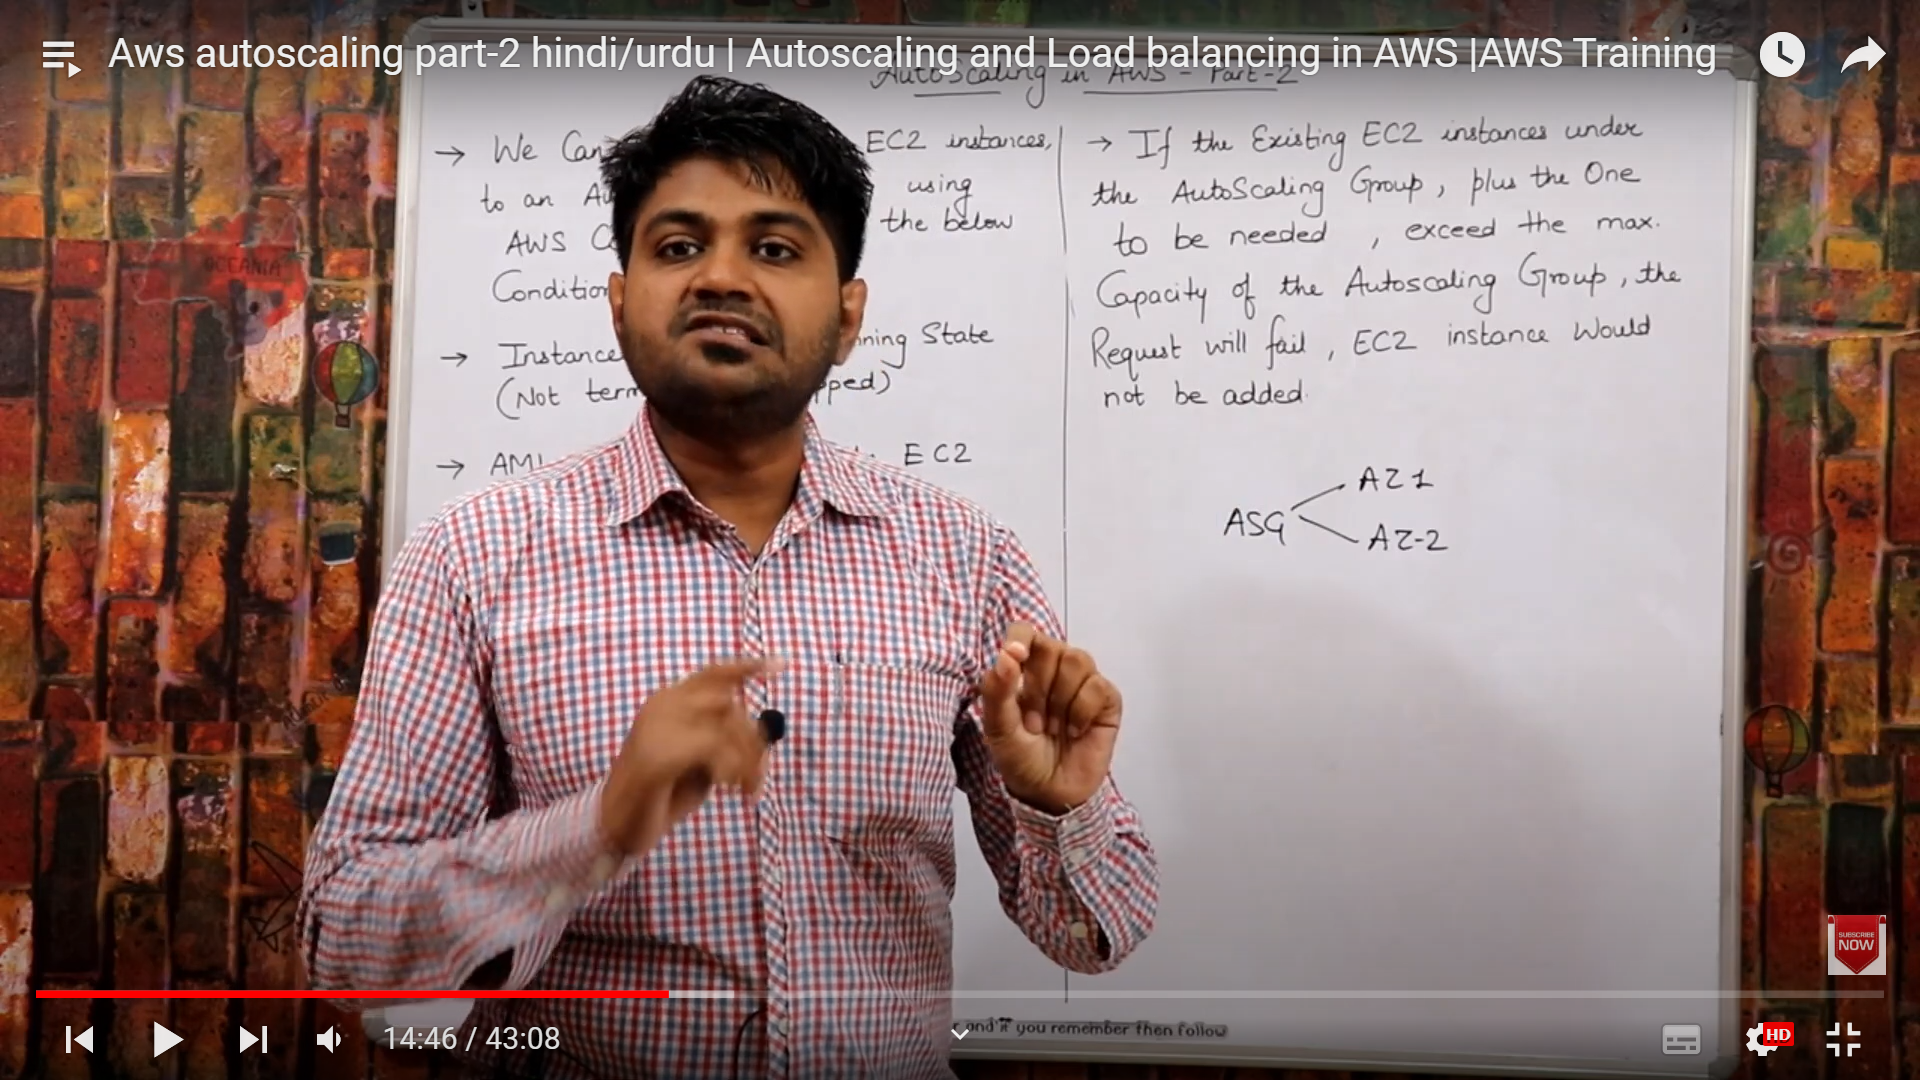 Aws autoscaling part-2 hindi/urdu | Autoscaling and Load balancing in AWS |AWS Training
AutoScaling in AWS - Part-2
→ We Can EC2 instances,
to an using
AWS the below
Condition
→ Instance State
(Not
→ AMI EC2
→ If the Existing EC2 instances under
the AutoScaling Group, plus the One
to be needed , exceed the max.
Capacity of the Autoscaling Group, the
Request will fail, EC2 instance Would
not be added.
ASG
AZ1
AZ-2
OCEANIA
SUBSCRIBE
NOW
14:46 / 43:08
and if you remember then follow
HD